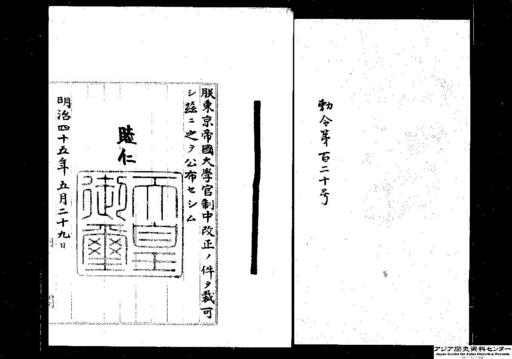 勅令第百二十号
朕東京帝國大學官制中改正ノ件ヲ裁可
シ茲ニ之ヲ公布セシム
睦仁
天皇
御璽
明治四十五年五月二十九日
アジア歴史資料センター
Japan Center for Asian Historical Records